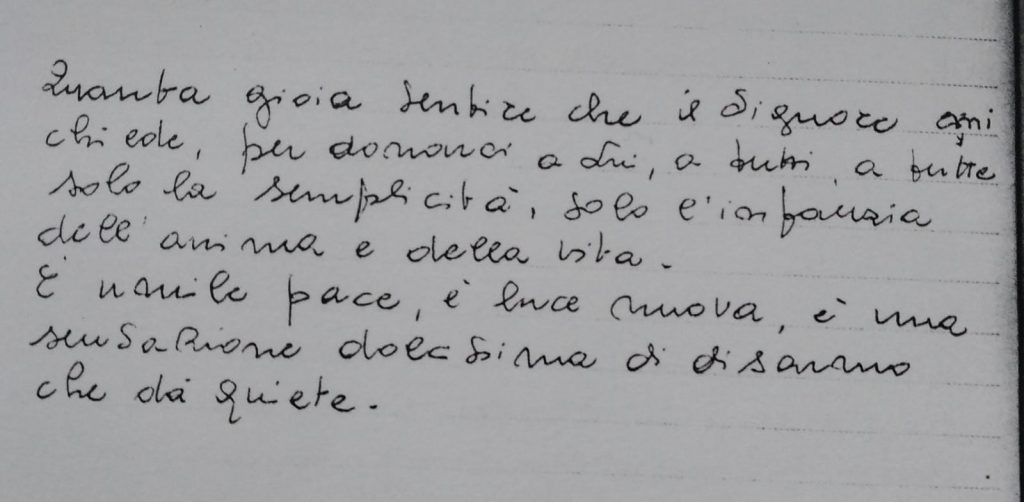 Quanta gioia sentire che il Signore mi
chiede, per donarci a Lui, a tutti, a tutte
solo la semplicità, solo l'infanzia
dell'anima e della vita.
È umile pace, è luce nuova, è una
sensazione dolcissima di disarmo
che dà quiete.